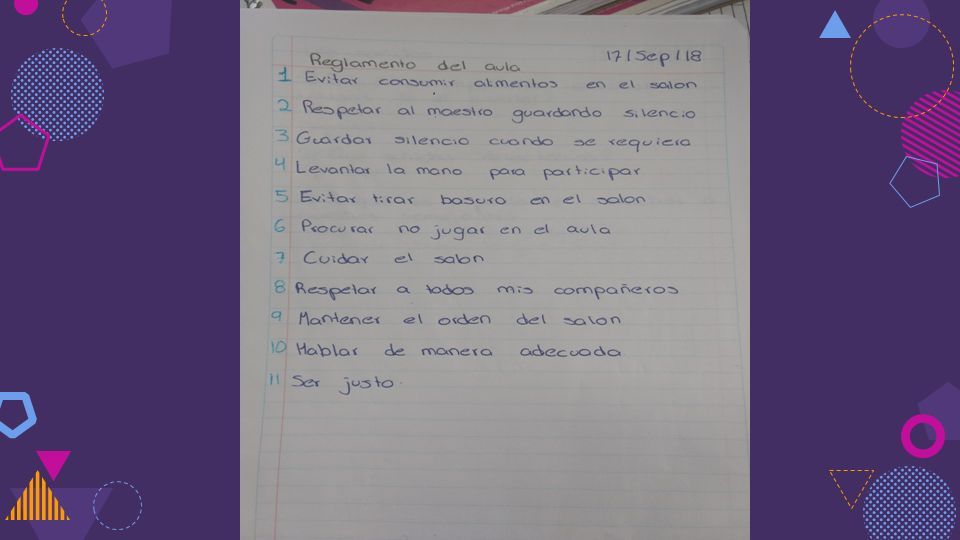 17/Sep/18
Reglamento del aula
1 Evitar consumir alimentos en el salon
2 Respetar al maestro guardando silencio
3 Guardar silencio cuando se requiera
4 Levantar la mano para participar
5 Evitar tirar basura en el salon
6 Procurar no jugar en el aula
7 Cuidar el salon
8 Respetar a todos mis compañeros
9 Mantener el orden del salon
10 Hablar de manera adecuada
11 Ser justo.